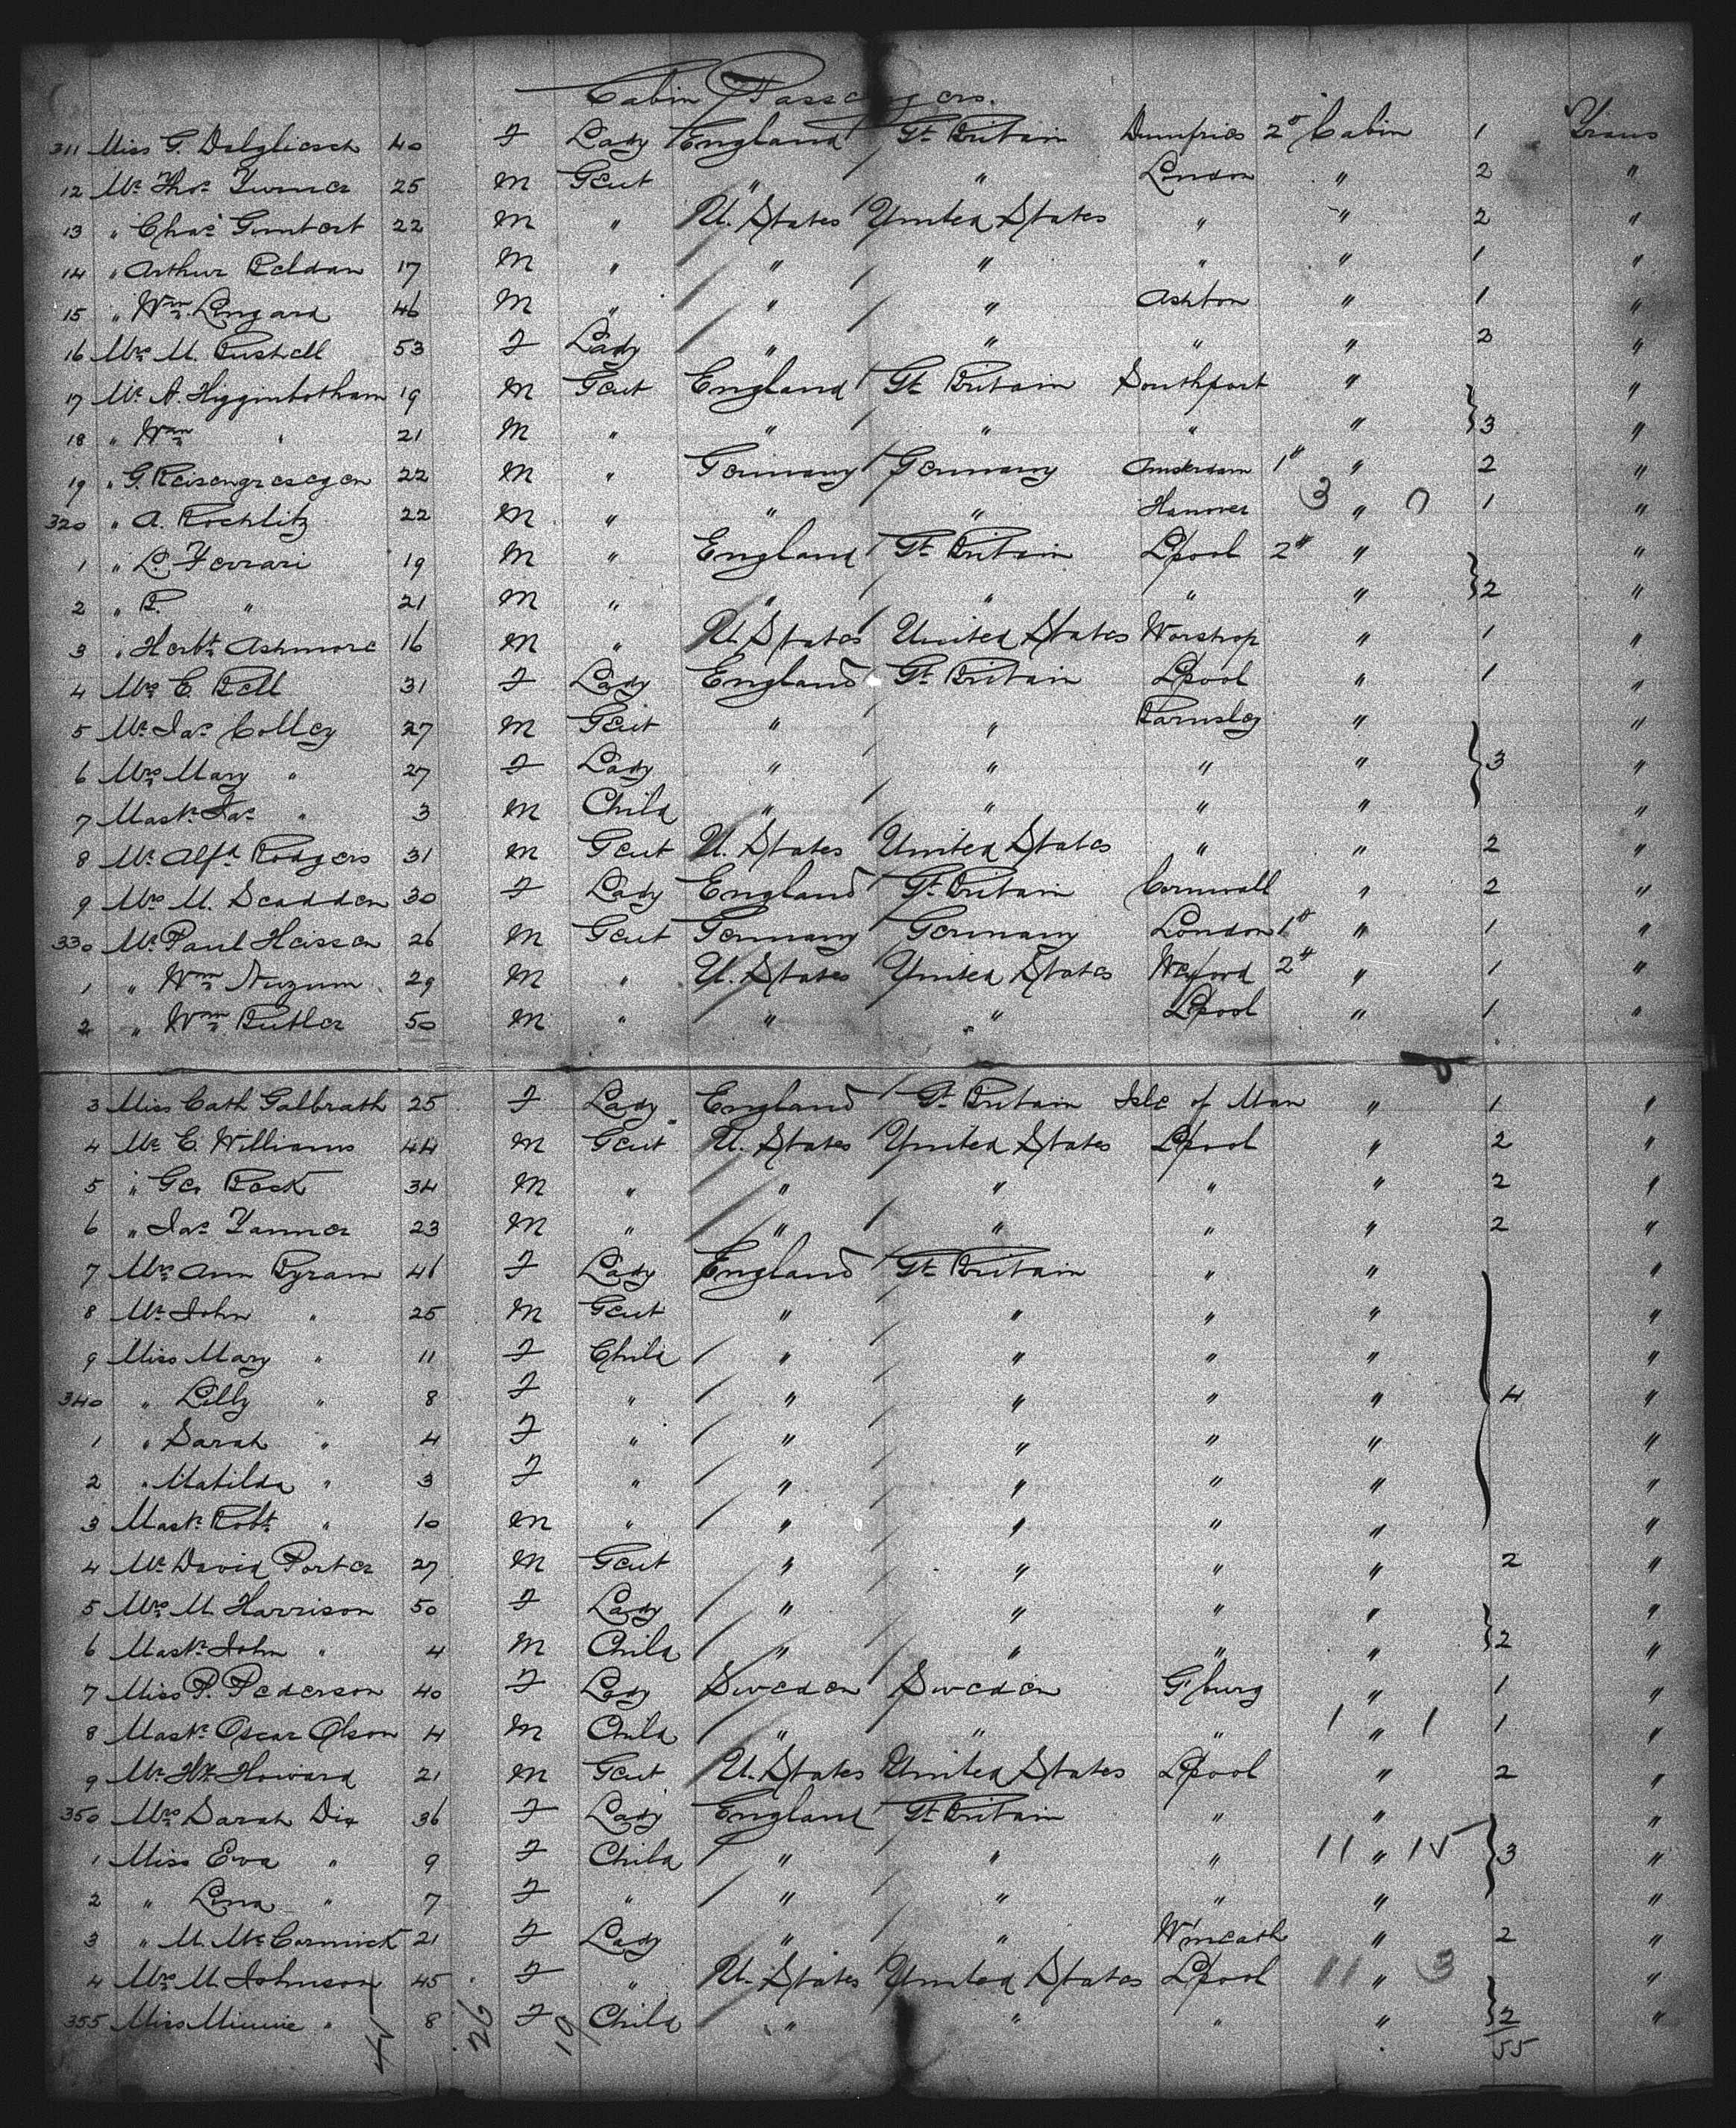 Cabin Passengers.
311 Miss G. Dalgliesch 40 F Lady England Gt. Britain Dumfries 2" Cabin 1 Trans
12 Mr. Thos. Turner 25 M Gent " " London " 2 "
13 " Chas. Gumtert 22 M " U. States United States " " 2 "
14 " Arthur Beldam 17 M " " " " " 1 "
15 " Wm. Lingard 46 M " " " Ashton " 1 "
16 Mrs. M. Bushell 53 F Lady " " " " 2 "
17 Mr. A. Higginbotham 19 M Gent England Gt. Britain Southport " "
18 " Wm. " 21 M " " " " " 3 "
19 " G. Reisengresegen 22 M " Germany Germany Amsterdam 1" " 2 "
320 " A. Rochlitz 22 M " " " Hanover 3 " 0 1 "
1 " L. Ferrari 19 M " England Gt. Britain Lpool 2" " "
2 " B. " 21 M " " " " " 2 "
3 " Herbt. Ashmore 16 M " U. States United States Worshop " 1 "
4 Mrs. E. Bell 31 F Lady England Gt. Britain Lpool " 1 "
5 Mr. Jas. Colley 27 M Gent " " Barnsley " "
6 Mrs. Mary " 27 F Lady " " " " 3 "
7 Mastr. Jas. " 3 M Child " " " " "
8 Mr. Alfd. Rodgers 31 M Gent U. States United States " " 2 "
9 Mrs. M. Scadden 30 F Lady England Gt. Britain Cornwall " 2 "
330 Mr. Paul Heissen 26 M Gent Germany Germany London 1" " 1 "
1 " Wm. Nuzum 29 M " U. States United States Wexford 2" " 1 "
2 " Wm. Butler 50 M " " " Lpool " 1 "
3 Miss Cath Galbrath 25 F Lady England Gt. Britain Isle of Man " 1 "
4 Mr. E. Williams 44 M Gent U. States United States Lpool " 2 "
5 " Geo Back 34 M " " " " " 2 "
6 " Jas. Tanner 23 M " " " " " 2 "
7 Mrs. Ann Byram 46 F Lady England Gt. Britain " " "
8 Mr. John " 25 M Gent " " " " "
9 Miss Mary " 11 F Child " " " " "
340 " Lilly " 8 F " " " " " 4 "
1 " Sarah " 4 F " " " " " "
2 " Matilda " 3 F " " " " " "
3 Mastr. Robt. " 10 M " " " " " "
4 Mr. David Porter 27 M Gent " " " " 2 "
5 Mrs. M. Harrison 50 F Lady " " " " "
6 Mastr. John " 4 M Child " " " " 2 "
7 Miss P. Pederson 40 F Lady Sweden Sweden G'burg " 1 "
8 Mastr. Oscar Olson 4 M Child " " " 1 " 1 1 "
9 Mr. Hy. Howard 21 M Gent U. States United States Lpool " 2 "
350 Mrs. Sarah Dix 36 F Lady England Gt. Britain " " "
1 Miss Eva " 9 F Child " " " 11 " 15 3 "
2 " Lina " 7 F " " " " " "
3 " M. McCormick 21 F Lady " " W'meath " 2 "
4 Mrs. M. Johnson 45 F " U. States United States Lpool 11 " 3 "
355 Miss Minnie " 8 F Child " " " " 2 "
26 19 55